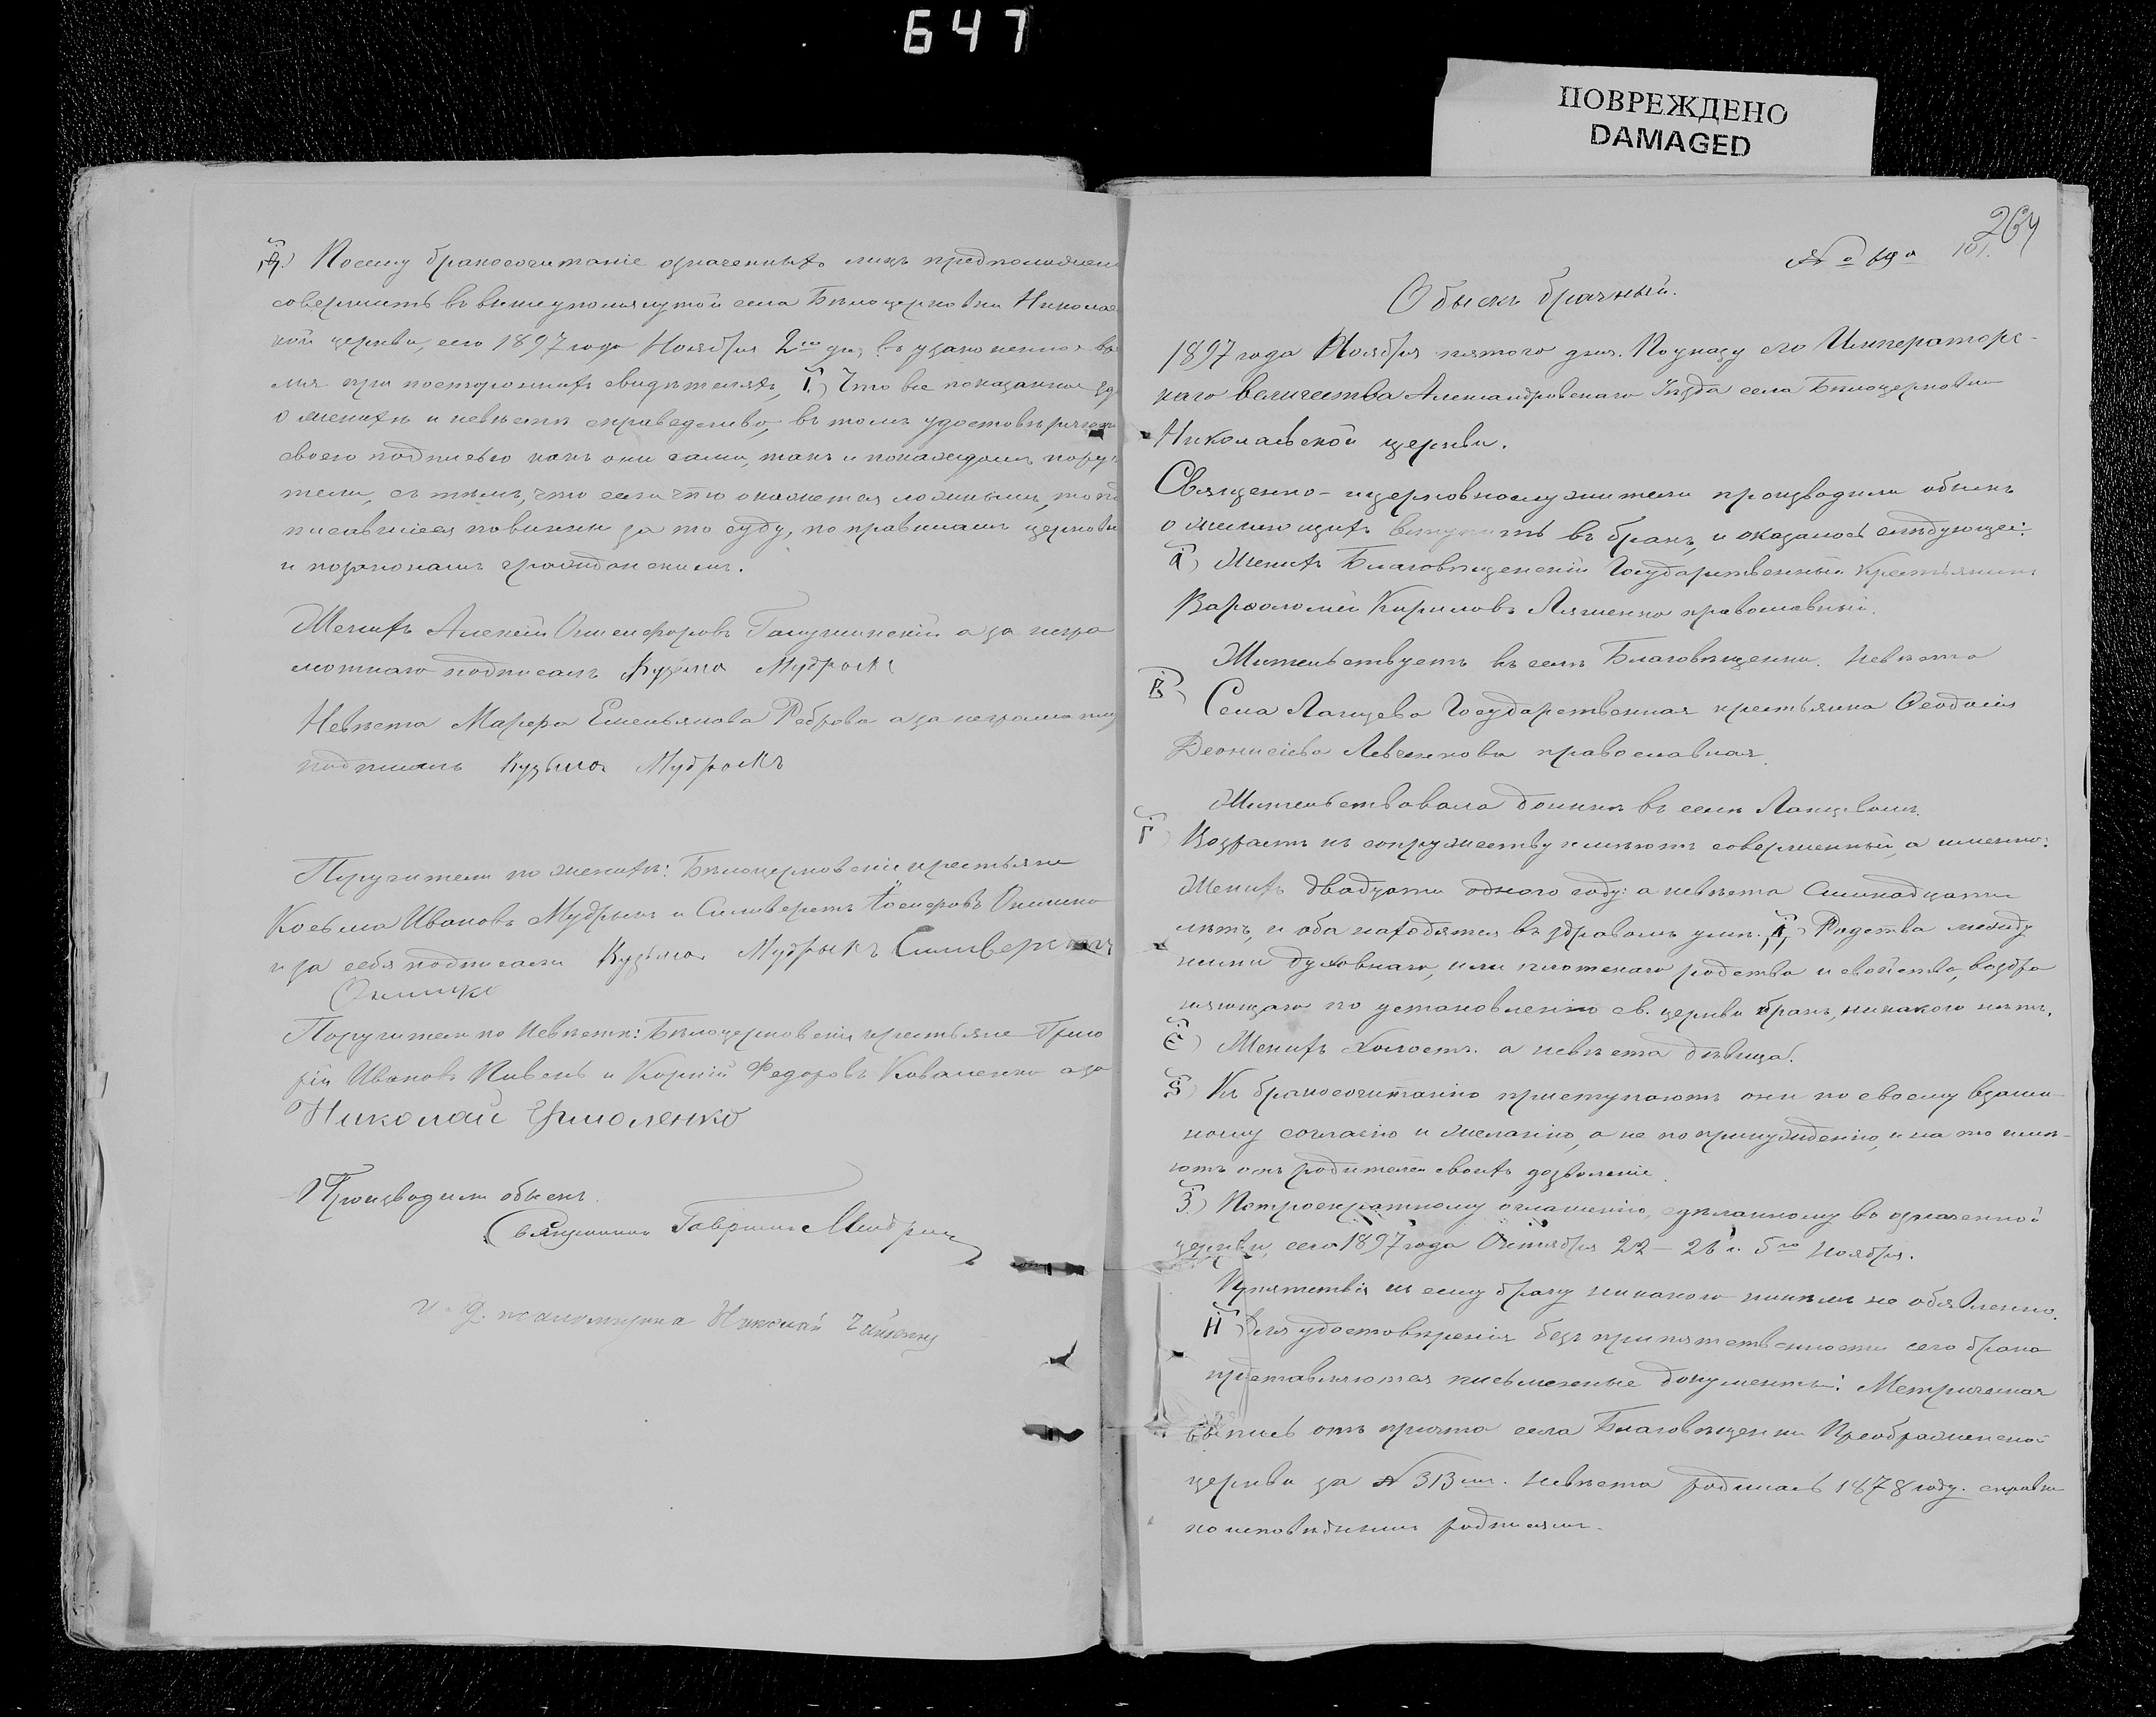 647
ПОВРЕЖДЕНО
DAMAGED
Ѳ.) Посему бракосочитаніе означенныхъ лицъ предположен
совершить въ вышеупомянутой села Бѣлоцерковки Николае
кой церкви, сего 1897 года Ноября 2го дня, въ узаконенное вре
мя при постороннихъ свидѣтеляхъ, І.) Что все показанное зд
о женихѣ и невѣстѣ справедливо, въ томъ удостовѣряютъ
своею подписью какъ они сами, такъ и по каждомъ пору
тели, съ тѣмъ, что если что окажется ложнымъ, то по
писавшіеся повинни за то суду, по правиламъ церковн
и по законамъ гражданскимъ.
Женихъ Алексѣй Онисифоровъ а за негра
мотнаго подписалъ Кузьма Мудрыкъ
Невѣста Марфа Емельянова Реброва а за неграмотную
подписалъ Кузьма Мудрыкъ
Поручители по женихѣ: Бѣлоцерковскіе крестьяне
Косьма Ивановъ Мудрыкъ и Сильверстъ Онишко
и за себя подписали Кузьма Мудрыкъ Сильверстъ
Онишко
Поручители по Невѣстѣ: Бѣлоцерковскіе крестьяне Григо
рій Ивановъ Пивень и Корній Федоровъ Коваленко а за
Николай Ермоленко
Производили обыскъ
Священникъ Гавріилъ
и. д. псаломщика Николай
264
№ 69й 101.
Обыскъ брачный.
1897 года Ноября пятого дня. По указу его Императорс-
каго величества Александровскаго Уѣзда села Бѣлоцерковки
Николаевской церкви.
Священно-церковнослужители производили обыскъ
о желающихъ вступить въ бракъ, и оказалось слѣдующее:
А) Женихъ Благовѣщенскій Государственный Крестьянинъ
Варфоломей Кириловъ Ляшенко православный.
Жительствуетъ въ селѣ Благовѣщенки. Невѣста
В) Села Ланцева Государственная крестьянка Феодосія
Деонисіева Левченкова православная.
Жительствовала донынѣ въ селѣ Ланцевомъ.
Г) Возрастъ къ супружеству имѣютъ совершенный, а именно:
Женихъ двадцати одного году: а невѣста Симнадцати
лѣтъ, и оба находятся въ здравомъ умѣ. Д) Родства между
ними духовнаго, или плотскаго родства и свойства, возбра
няющаго по установленію св. церкви бракъ, никакого нѣтъ.
Е) Женихъ холостъ. а невѣста дѣвица.
Ѕ) Къ бракосочитанію приступаютъ они по своему взаим-
ному согласію и желанію, а не по принужденію, и на то имѣ-
ютъ отъ родителей своихъ дозволеніе.
З.) По троекратному оглашенію, сдѣланному въ означенной
церкви, сего 1897 года Октября 22 – 26 и 5го Ноября.
Препятствія къ сему браку никакого никѣмъ не объявленно.
И) Для удостовѣренія безъ припятственности сего брака
представляются письменные документы: Метрическая
выпись отъ причта села Благовѣщенки Преображенской
церкви за № 313мъ. Невѣста родилась 1878 году. справки
по исповѣднымъ росписямъ.